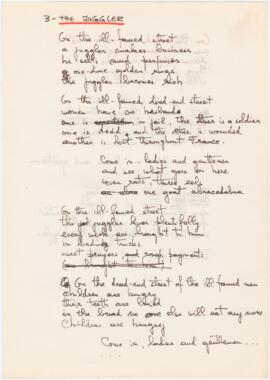 3 - THE JUGGLER
On the ill-famed street
a juggler makes business
he sells mud perfumes
one-time golden rings
the juggler becomes rich
On the ill-famed dead-end street
women have no husbands
one is in jail, the other is a soldier
one is dead, and the other is wounded
another is lost throughout France.
Come in, ladies and gentlemen
and see what goes on here
even rats, three eels
one great abracadabra
On the ill-famed street
the juggler lives plentifully
every were brought to him
in loading trucks
sweet prayers and rough payments
On the dead-end street of the ill-famed men
children are hungry
their teeth are
in the bread no one else will eat any more
Children are hungry
Come in, ladies and gentlemen ...
....